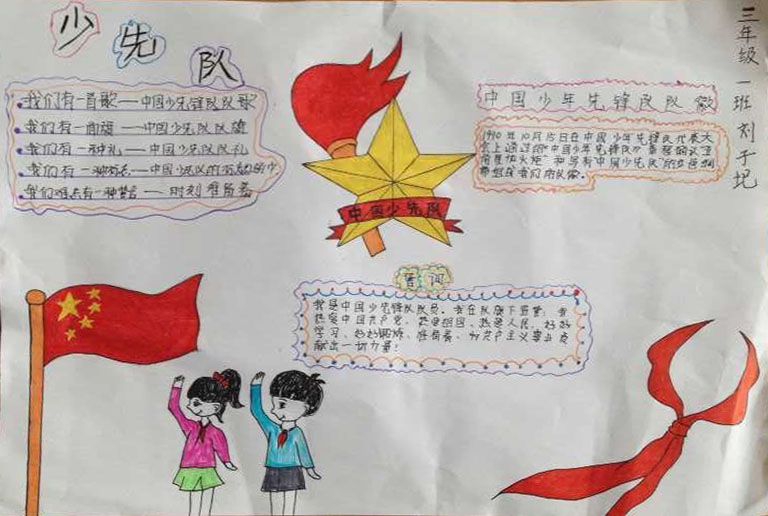 少先队
三年级一班 刘子圯
我们有一首歌——中国少先锋队队歌
我们有一面旗——中国少先队队旗
我们有一种礼——中国少先队队礼
我们有一种 ——中国少先队的
我们 有一种 —— 时刻准备着
中国少先队
中国少年先锋队队徽
1990年10月15日在中国少年先锋队代表大
会上通过的“中国少年先锋队
角星加火炬”和写有“中国少先队”的
带组成我们的队徽。
誓词
我是中国少年先锋队队员。我在队旗下宣誓：我
热爱中国共产党、热爱祖国、热爱人民，好好
学习、好好锻炼、准备着，为共产主义事业贡
献出一切力量！